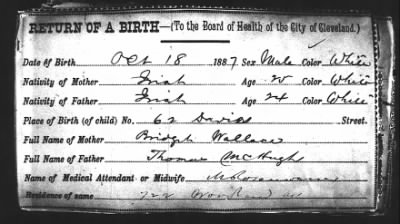 RETURN OF A BIRTH—(To the Board of Health of the City of Cleveland.)
Date of Birth Oct 18 1887 Sex Male Color White
Nativity of Mother Irish Age 20 Color White
Nativity of Father Irish Age 24 Color White
Place of Birth (of child) No. 62 Davies Street.
Full Name of Mother Bridget Wallace
Full Name of Father Thomas McHugh
Name of Medical Attendant or Midwife
Residence of same 722